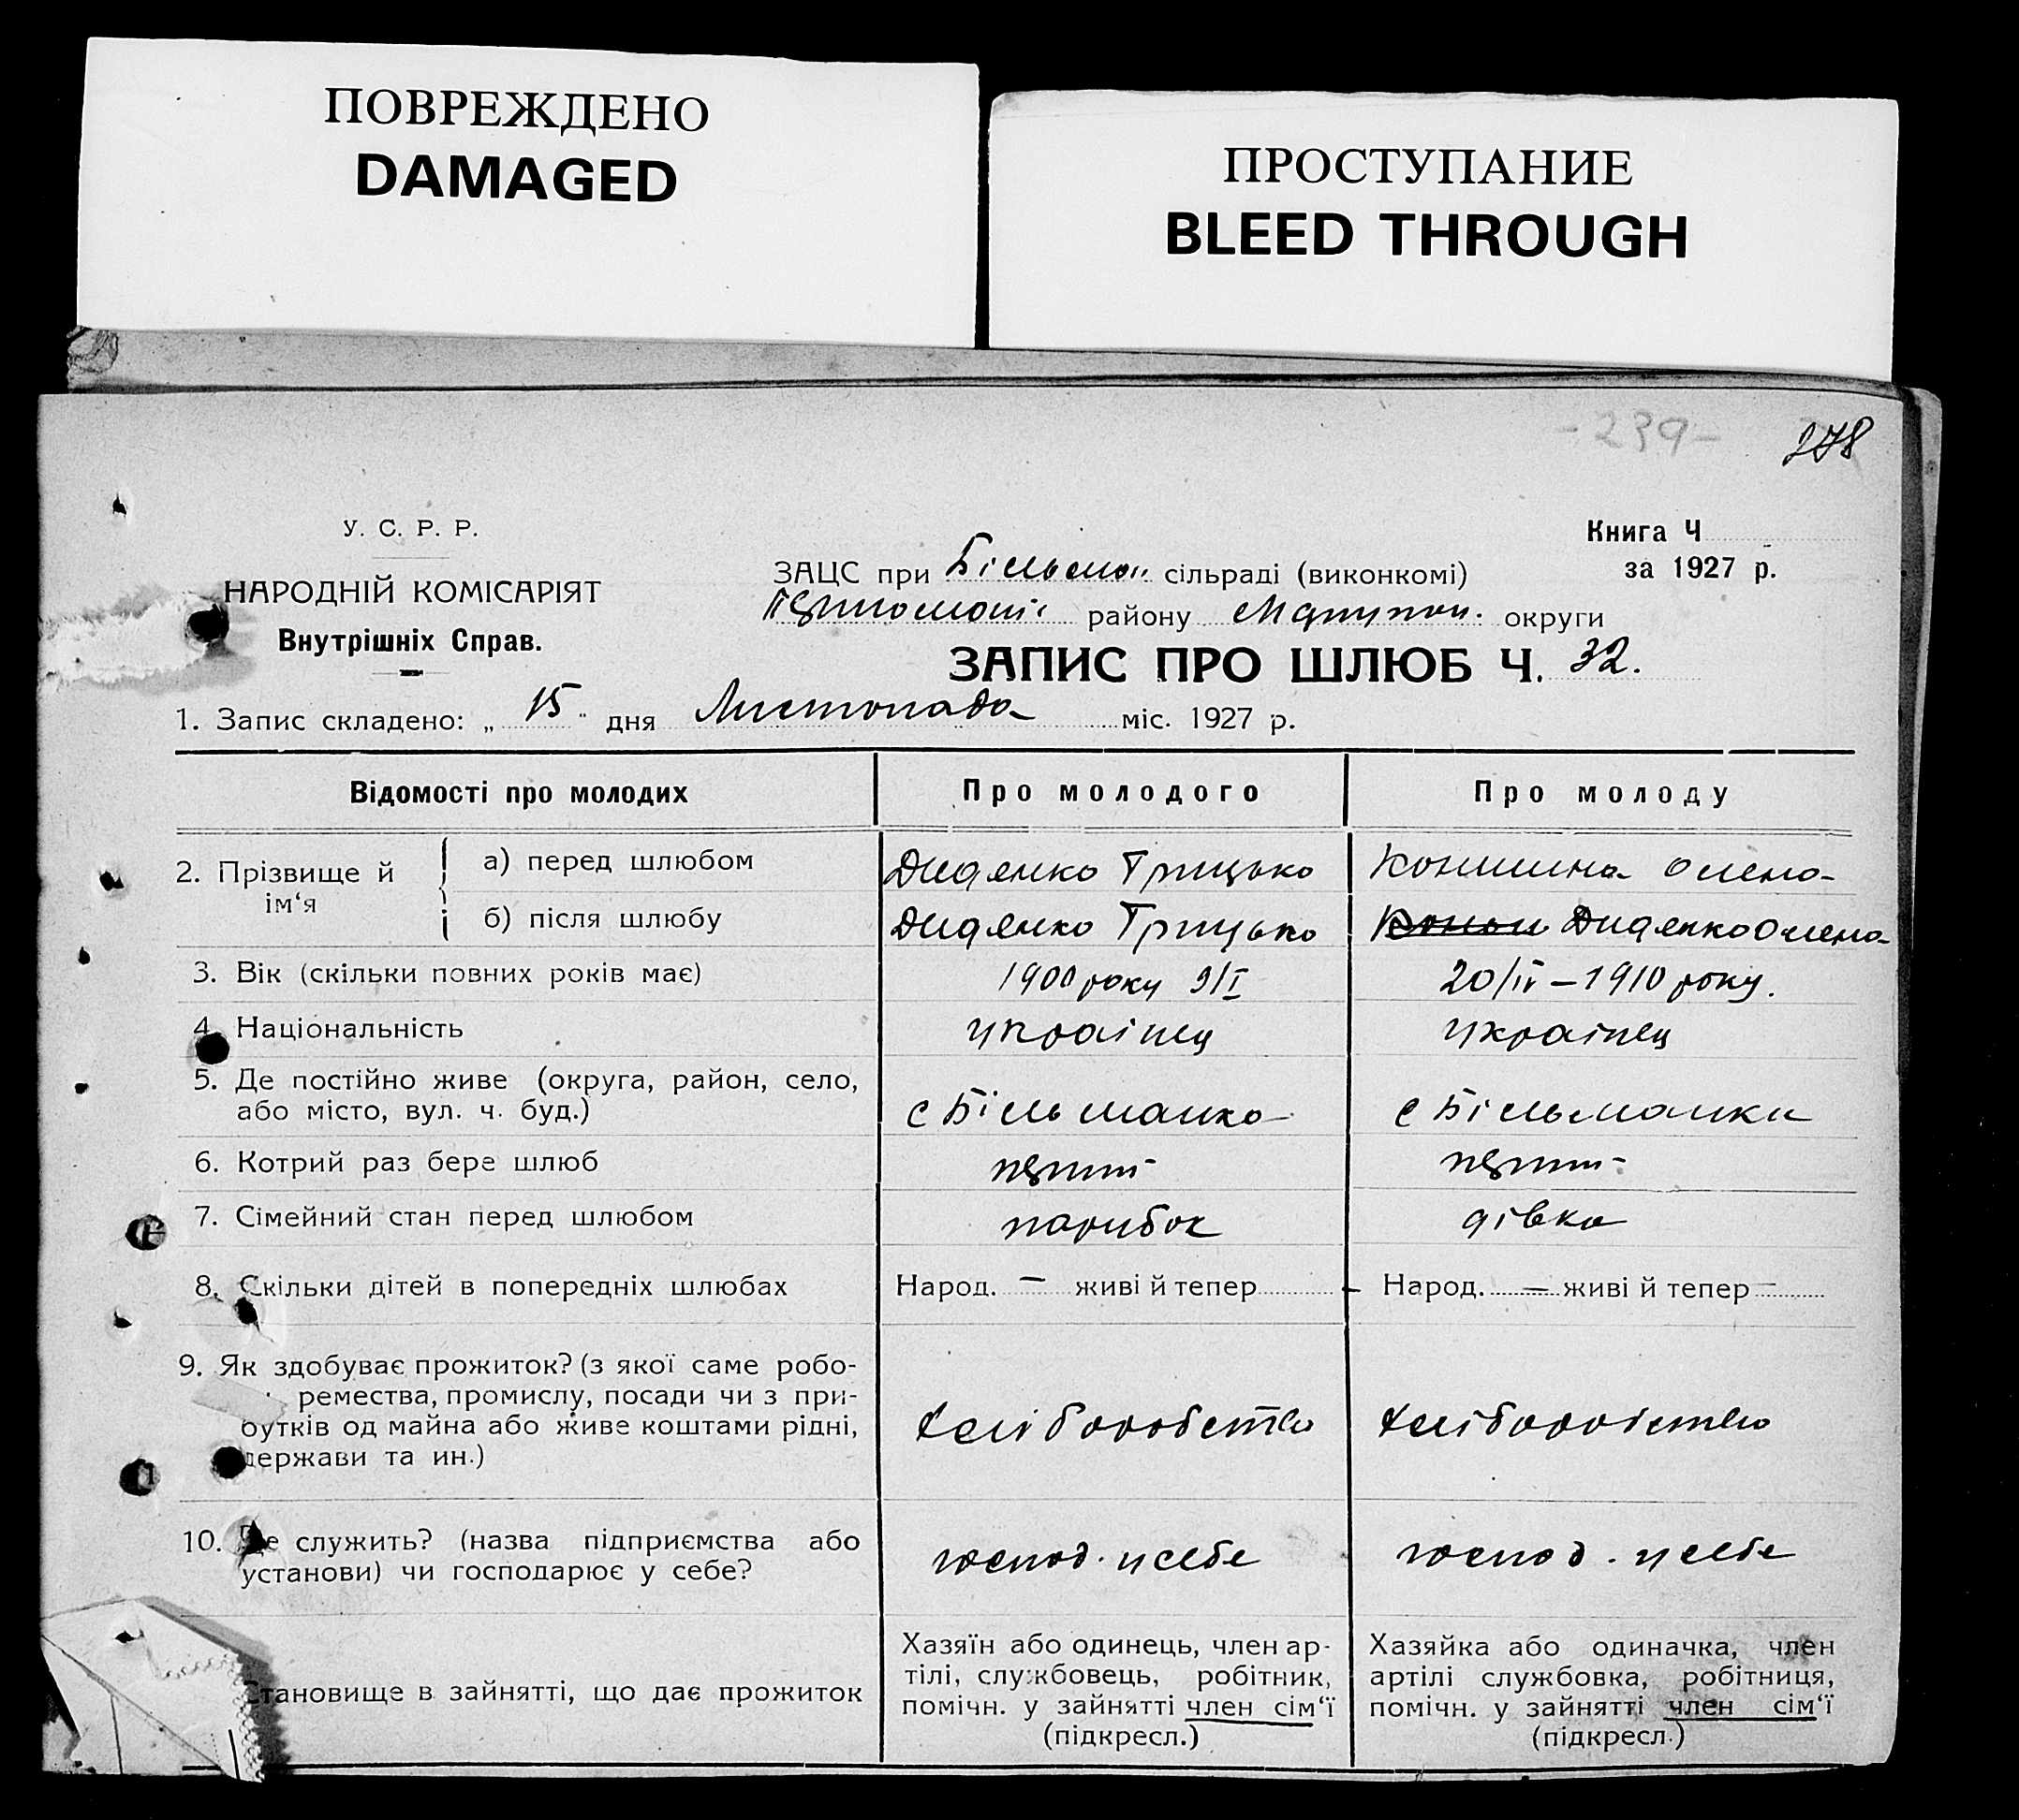 ПОВРЕЖДЕНО
DAMAGED
ПРОСТУПАНИЕ
BLEED THROUGH
- 239 -
278
У. С. Р. Р.
НАРОДНІЙ КОМІСАРІЯТ
Внутрішніх Справ.
Книга Ч
за 1927 р.
ЗАЦС при Більман. сільраді (виконкомі)
району Маріупол. округи
ЗАПИС ПРО ШЛЮБ Ч. 32.
1. Запис складено: „ 15 " дня Листопада міс. 1927 р.
Відомості про молодих
Про молодого
Про молоду
2. Прізвище й ім‘я
а) перед шлюбом
Диденко Грицько
Олена
б) після шлюбу
Диденко Грицько
Диденко Олена
3. Вік (скільки повних років має)
1900 року 9/I
20/IV – 1910 року.
4. Національність
українец
українец
5. Де постійно живе (округа, район, село,
або місто, вул. ч. буд.)
с Більманка
с Більманки
6. Котрий раз бере шлюб
перший
перший
7. Сімейний стан перед шлюбом
парубок
дівка
8. Скільки дітей в попередніх шлюбах
Народ. – живі й тепер –
Народ. – живі й тепер –
9. Як здобуває прожиток? (з якої саме робо-
ремества, промислу, посади чи з при-
бутків од майна або живе коштами рідні,
держави та ин.)
хліборобство
хліборобство
10. Де служить? (назва підприємства або
установи) чи господарює у себе?
господ. у себе
господ. у себе
Становище в зайнятті, що дає прожиток
Хазяїн або одинець, член ар-
тілі, службовець, робітник,
помічн. у зайнятті член сім‘ї
(підкресл.)
Хазяйка або одиначка, член
артілі службовка, робітниця,
помічн. у зайнятті член сім‘ї
(підкресл.)